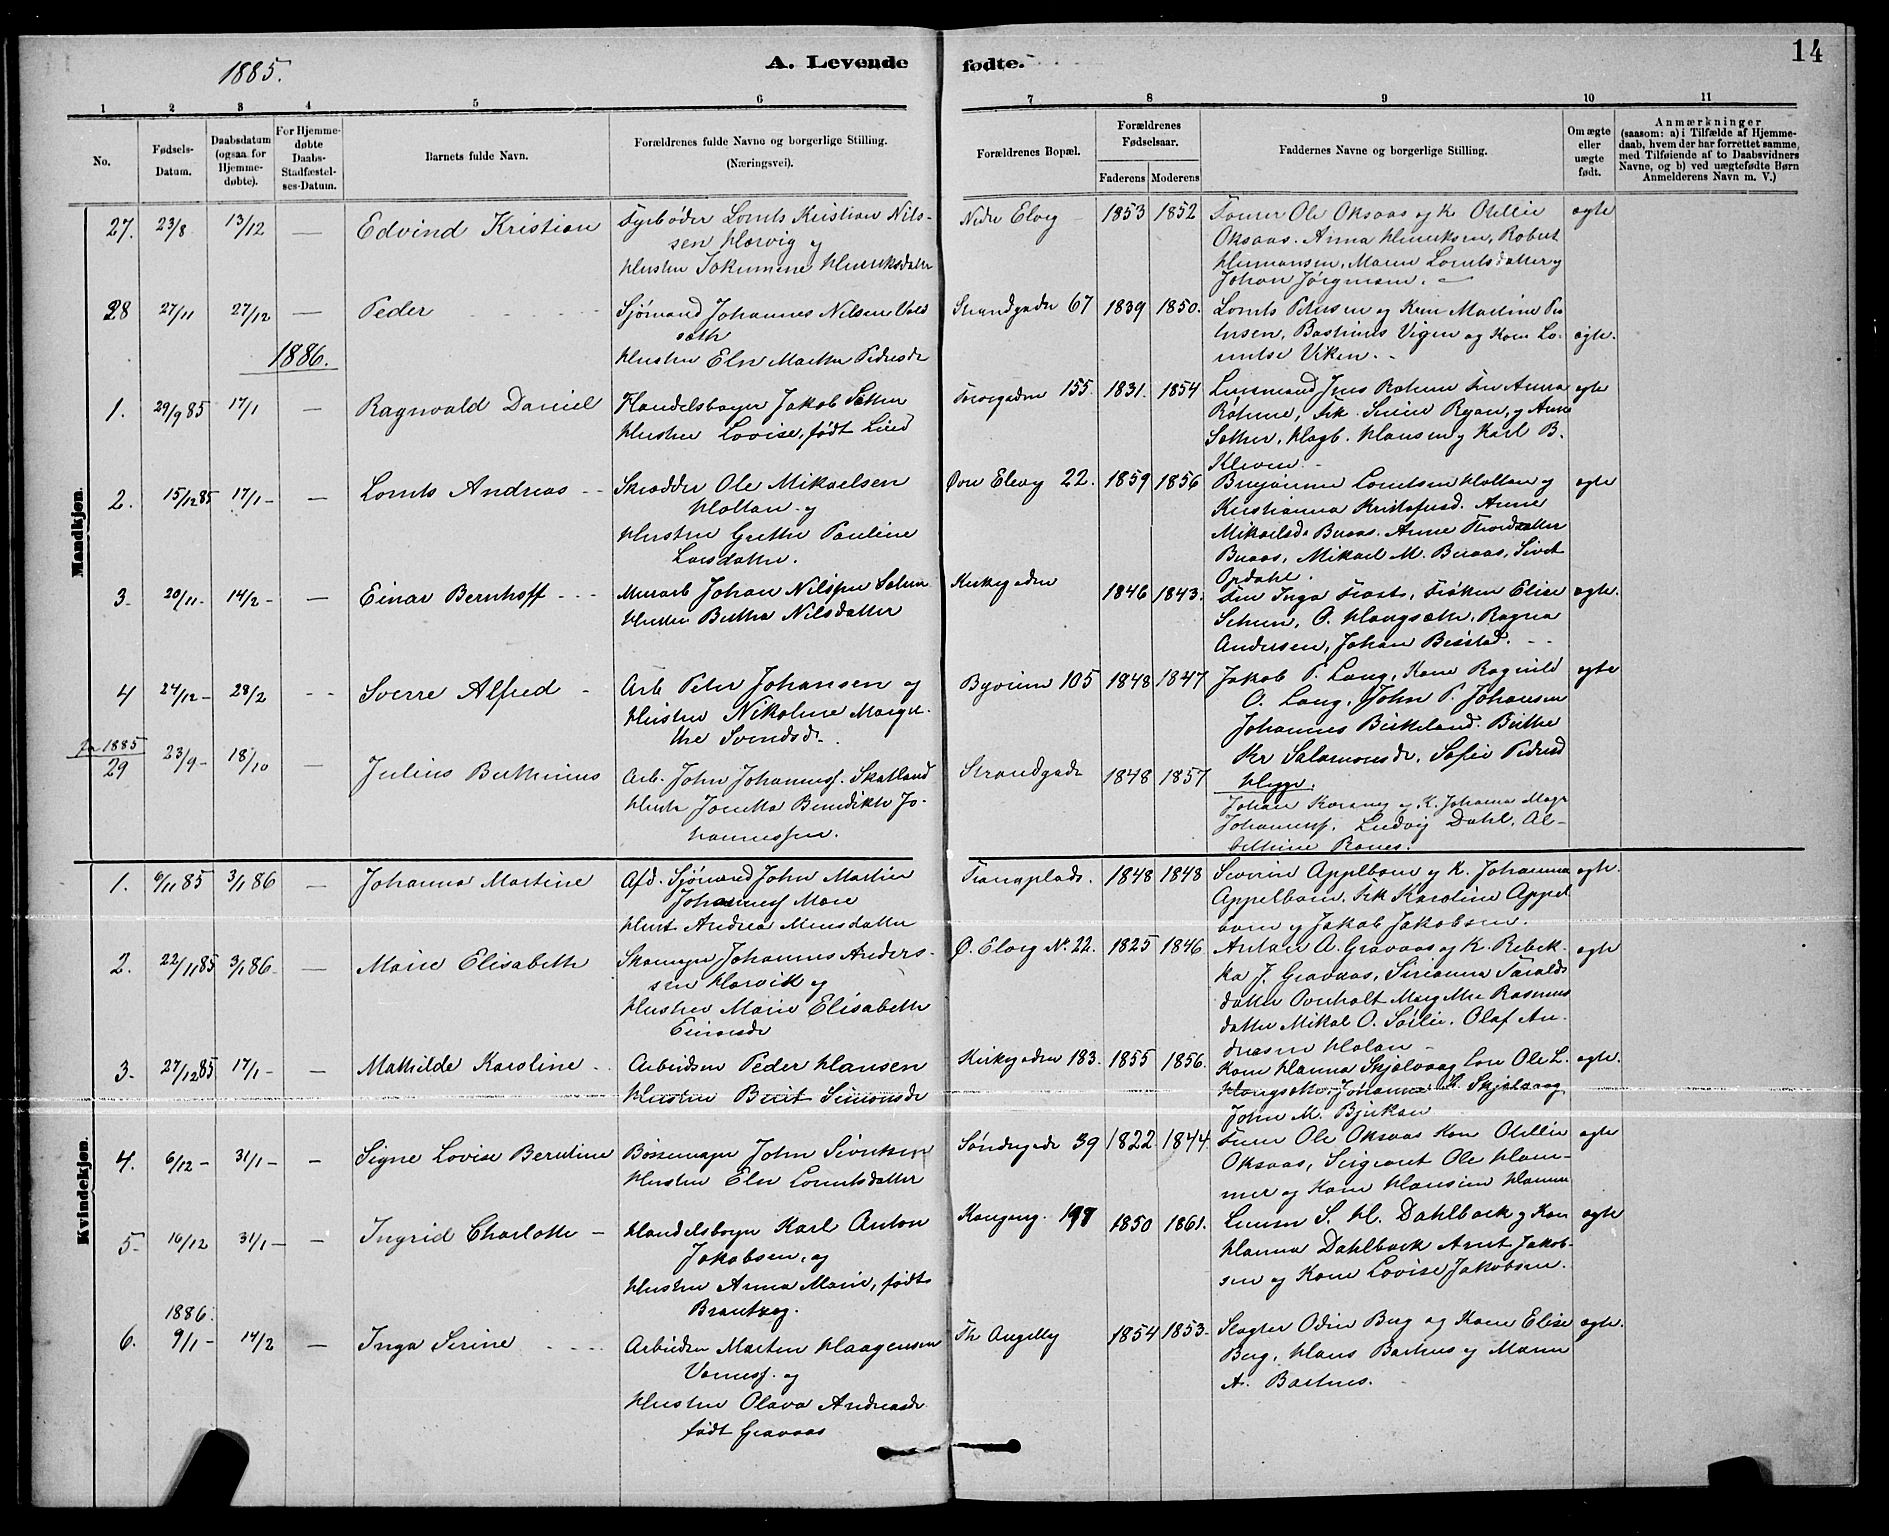 14
1885.
A. Levende fødte.
1 2 3 4 5 6 7 8 9 10 11
No.
Fødsels-
Datum.
Daabsdatum
(ogsaa for
Hjemme-
døbte).
For Hjemme-
døbte
Daabs-
Stadfæstel-
ses-Datum.
Barnets fulde Navn.
Forældrenes fulde Navne og borgerlige Stilling.
(Næringsvei).
Forældrenes Bopæl.
Forældrenes
Fødselsaar.
Faderens Moderens
Faddernes Navne og borgerlige Stilling.
Om ægte
eller
uægte
født.
Anmærkninger
(saasom: a) i Tilfælde af Hjemme-
daab, hvem der har forrettet samme,
med Tilføiende af to Daabsvidners
Navne, og b) ved uægtefødte Børn
Anmelderens Navn m. V.)
Mandkjøn.
27. 23/8 13/12 — Edvind Kristian
Fyrbøder Lornts Kristian Nils-
sen Horvig og
Hustru Jokumine Henriksdatter
Nedre Elveg 1853 1852
Ole Oksaas og K. Otellie
Oksaas. Anna Henriksen, Robert
Hermansen, Maren Lorntsdatter og
Johan Jørgensen.
ægte
28 27/11 27/12 — Peder
Sjømand Johannes Nilsen
Hustru Elen Marthe Pedersdr
Strandgaden 67 1839 1850.
Lornts Petersen og Kone Martine Pe-
tersen, Bastinus Vigen og Kone Lo-
rentse Viken.
ægte.
1886.
1. 29/9 85 17/1 — Ragnvald Daniel
Handelsborger Jakob Sæther
Hustru Lovise, født Lind
155. 1831. 1854
Lensmand Jens Rohme Fru Anna
Rohme, Frk. Ryan, og Anne
Sæther, Hagb. Hansen og Karl B.
Kleven.
ægte
2. 15/12 85 17/1 — Lornts Andreas
Skrædder Ole Mikaelsen
Holtan og
Hustru Grethe Pauline
Larsdatter.
Øvre Elveg 22. 1859 1856
Lorntsen Holtan og
Kristianna Kristofersd. Anne
Mikaelsd. Buaas. Anne Thordsdatter
Buaas, Mikael M. Buaas, Sivert
Opdahl.
ægte
3. 20/11 14/2 — Einar Bernhoff
Murarb Johan Nilssen
Hustru Bertha Nilsdatter
Kirkegaden 1846 1843.
Fru Inga Frost, Frøken Elise
O. Haugsæth, Ragna
Andersen, Johan
ægte.
4 24/12 28/2 Sverre Alfred
Arb Peter Johansen og
Hustru Nikoline Margre-
the Svendsdr.
105 1848 1847
Jakob P. Lang, Kone Ragnild
O. Lang, John P. Johansen
Johannes Birkeland. Brithe
Kr Salamonsdr, Sofie Pedersd
Hegge.
ægte
fra 1885
29 23/9 18/10 — Julius Berthinius
Arb. John Johannesf. Skatland
Hustr Jonetta Benedikte Jo-
hannessen.
Strandgade 1848 1857
Johan og K. Johanna
Johannesf. Ludvig Dahl, Al-
bertine Ranes.
Kvindekjøn.
1. 6/11 85 3/1 86 — Johanna Martine
Afd. Sjømand John Martin
Johannesf More
Hust. Andrea Monsdatter
1848 1848
Severin Appelbom og K. Johanna
Appelbom, Frk Karoline Appel
bom og Jakob Jakobsen.
ægte.
2. 22/11 85 3/1 86 — Marie Elisabeth
Skomager Johannes Anders-
sen Horvik og
Hustru Marie Elisabeth
Einarsdr
Ø. Elveg No. 22. 1825 1846
Antan A. Gravaas og K. Rebek-
ka J. Gravaas, Sirianna Taralds
datter Overholt Margrethe Rasmus
datter Mikal O. Sørlie, Olaf An-
dreasen Holan
ægte
3. 27/12 85 17/1 — Mathilde Karoline
Arbeidsm Peder Hansen
Hustru Berit Simonsdr
Kirkegaden 183. 1855 1856.
Kone Hanna Skjølvaag Ole L.
Haugsæther, Johanna L. Skjølvaag
John M. Bjerkan
ægte.
4. 6/12 31/1 — Signe Lovise Berntine
Bøssemager John Sivertsen
Hustru Elen Lorntsdatter
Søndregade 39 1822 1844.
Ole Oksaas Kone Otellie
Oksaas, Sergeant Ole Ham-
mer og Kone Hansine Hammer
ægte
5. 16/12 31/1 — Ingrid Charlotte
Handelsborger Karl Anton
Jakobsen, og
Hustru Anna Marie, født
Brantzeg.
Kongensg. 197 1850 1861.
S. H. Dahlback og Kone
Hanna Dahlback Arnt Jakob-
sen og Kone Lovise Jakobsen.
ægte
1886.
6. 9/1 14/2 — Inga Serine
Arbeidsm Morten Haagensen
og
Hustru Olava Andreasdr
født Gravaas
Th Angelly 1854 1853.
Slagter Odin Berg og Kone Elise
Berg, Hans Barhus og Maren
A. Barhus.
ægte.